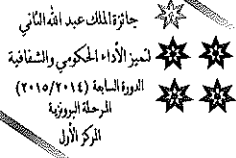 جائزة الملك عبد الله الثاني
لتميز الأداء الحكومي والشفافية
الدورة السابعة (٢٠١٥/٢٠١٤)
المرحلة البرونزية
المركز الأول